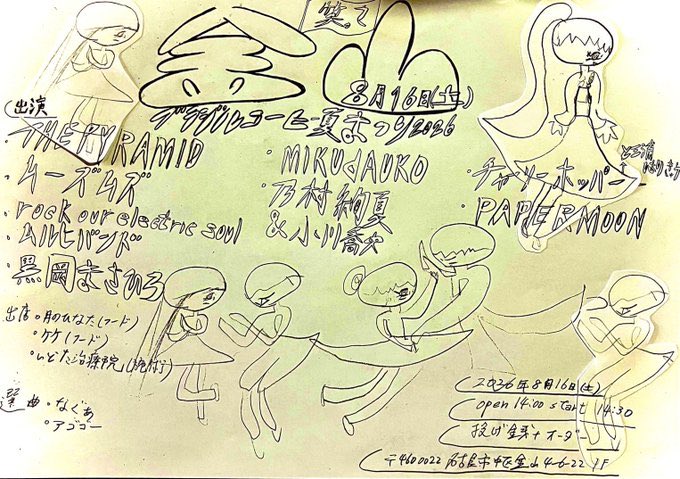 笑って
金山
8月16日(土)
ブラジルコーヒー夏まつり2026
(出演
・THE PYRAMID
・ムーズムズ
・rock our electric soul
・ムルヒバンド
・黒岡まさひろ
・MIKUdAUKO
・乃村絢夏
&小川喬央
・チャーリーホッパー
・PAPERMOON
出店・月のひなた(フード)
・ケケ(フード)
・いとた治療院
選曲・なぐあ
・アゴコー
2026年8月16日(土)
open 14:00 start 14:30
投げ銭+オーダー
〒4600022 名古屋市中区金山4-6-22 1F